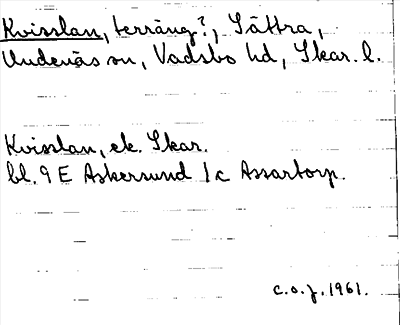 Kvisslan, terräng?, Sättra,
Undenäs sn, Vadsbo hd, Skar. l.
Kvisslan, ek. Skar.
bl. 9 E Askersund 1c Assartorp.
c.o.j. 1961.